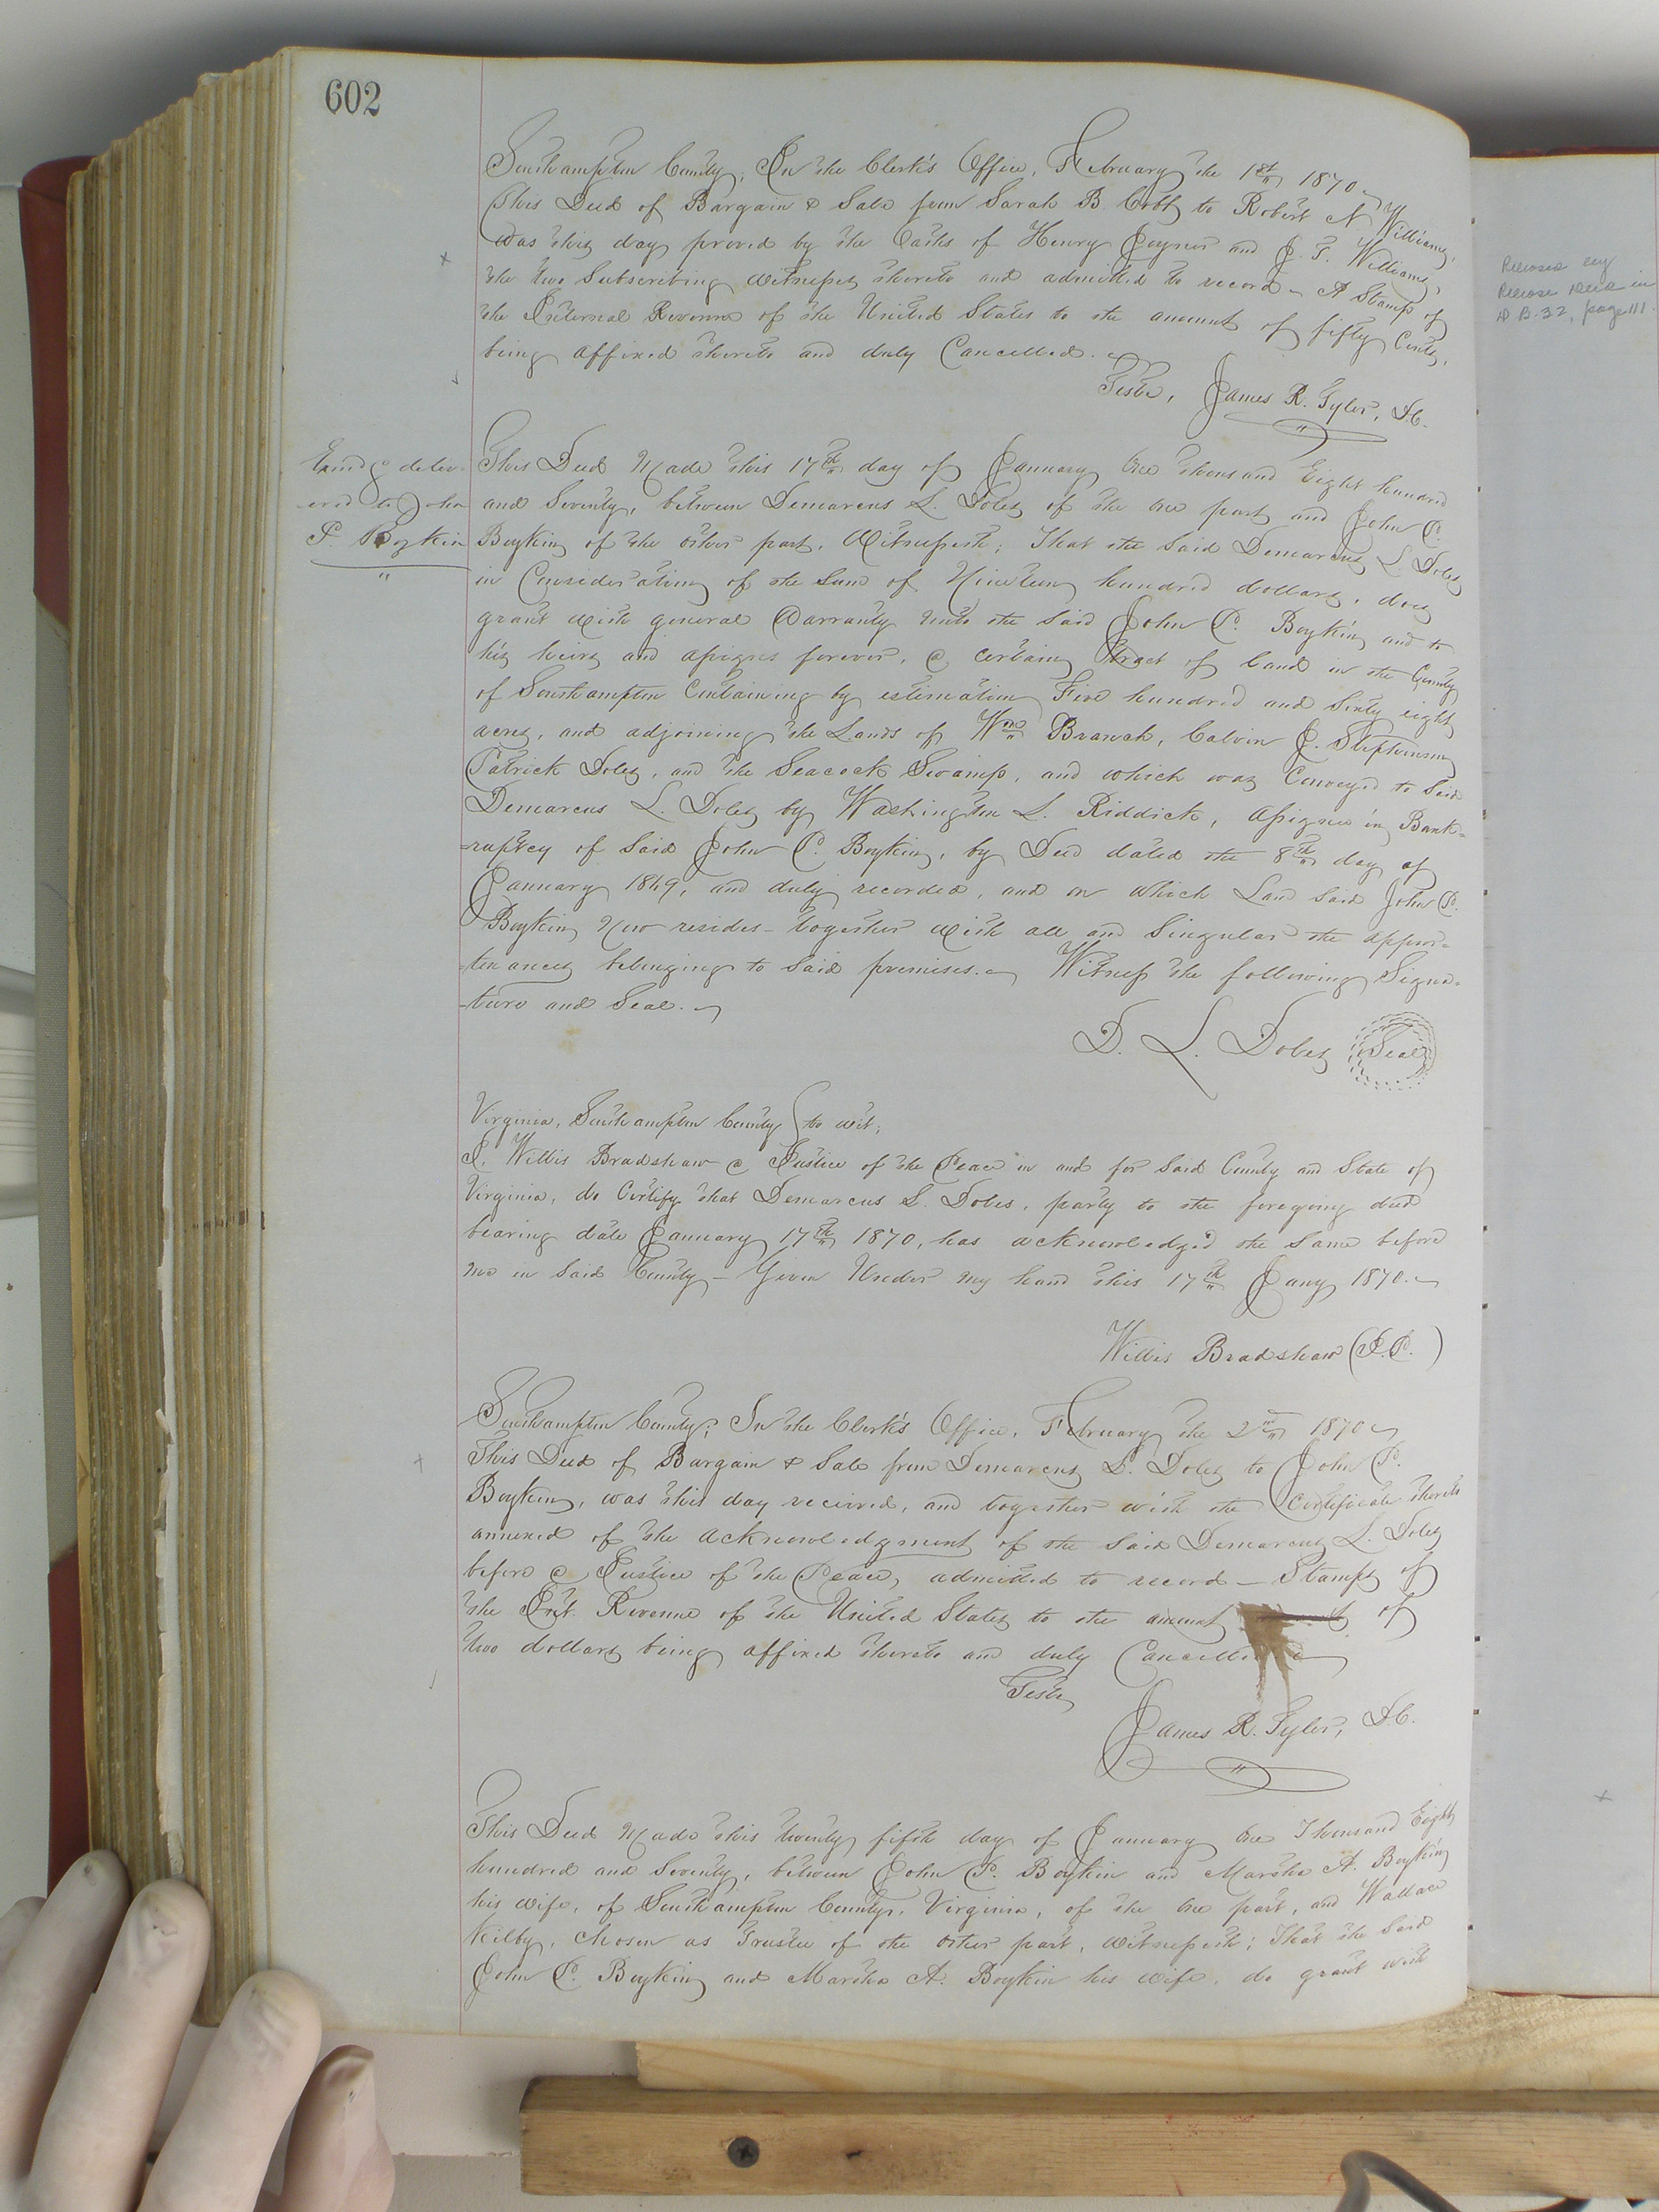 602
Southampton County; In the Clerk's Office, February the 1st 1870
This Deed of Bargain & Sale from Sarah B. Cobb to Robert N Williams,
was this day proved by the Oaths of Henry Joyner and J. T. Williams,
the two Subscribing witnesses thereto and admitted to record - A Stamp of
the Internal Revenue of the United States to the amount of fifty Cents,
being affixed thereto and duly Cancelled.
Teste, James R. Tyler, D.C.
Exmd & deliv-
ered to John
P. Boykin
This Deed Made this 17th day of January One thousand Eight hundred
and Seventy, between Demarcus L. Doles of the one part and John P.
Boykin of the other part, Witnesseth; That the Said Demarcus L. Doles
in Consideration of the Sum of Nineteen hundred dollars, does
grant with general Warranty unto the Said John P. Boykin and to
his heirs and assigns forever, a certain tract of land in the County
of Southampton Containing by estimation Five hundred and Sixty eight
acres, and adjoining the Lands of Wm Branch, Calvin J. Stephenson
Patrick Doles, and the Seacock Swamp, and which was Conveyed to Said
Demarcus L. Doles by Washington L. Riddick, Assignee in Bank-
-ruptcy of Said John P. Boykin, by Deed dated the 8th day of
January 1869, and duly recorded, and on which Land Said John P.
Boykin Now resides - together with all and Singular the appur-
-tenances belonging to Said premises. Witness the following Signa-
-ture and Seal.
D. L. Doles Seal
Virginia, Southampton County to wit;
I, Willis Bradshaw a Justice of the Peace in and for Said County and State of
Virginia, do Certify that Demarcus L. Doles, party to the foregoing deed
bearing date January 17th 1870, has acknowledged the Same before
me in Said County - Given Under my hand this 17th Jany 1870.
Willis Bradshaw (J.P.)
Southampton County; In the Clerk's Office, February the 2nd 1870
This Deed of Bargain & Sale from Demarcus L. Doles to John P.
Boykin, was this day received, and together with the Certificate thereto
annexed of the acknowledgment of the Said Demarcus L. Doles
before a Justice of the Peace, admitted to record - Stamps of
the Int. Revenue of the United States to the amount of
two dollars being affixed thereto and duly Cancelled
Teste
James R. Tyler, D.C.
This Deed Made this twenty fifth day of January One Thousand Eight
hundred and Seventy, between John P. Boykin and Martha A. Boykin
his wife, of Southampton County, Virginia, of the One part, and Wallace
Kilby, chosen as Trustee of the other part, witnesseth; That the Said
John P. Boykin and Martha A. Boykin his wife, do grant with
Released by
Release Deed in
D B. 32, page 111.